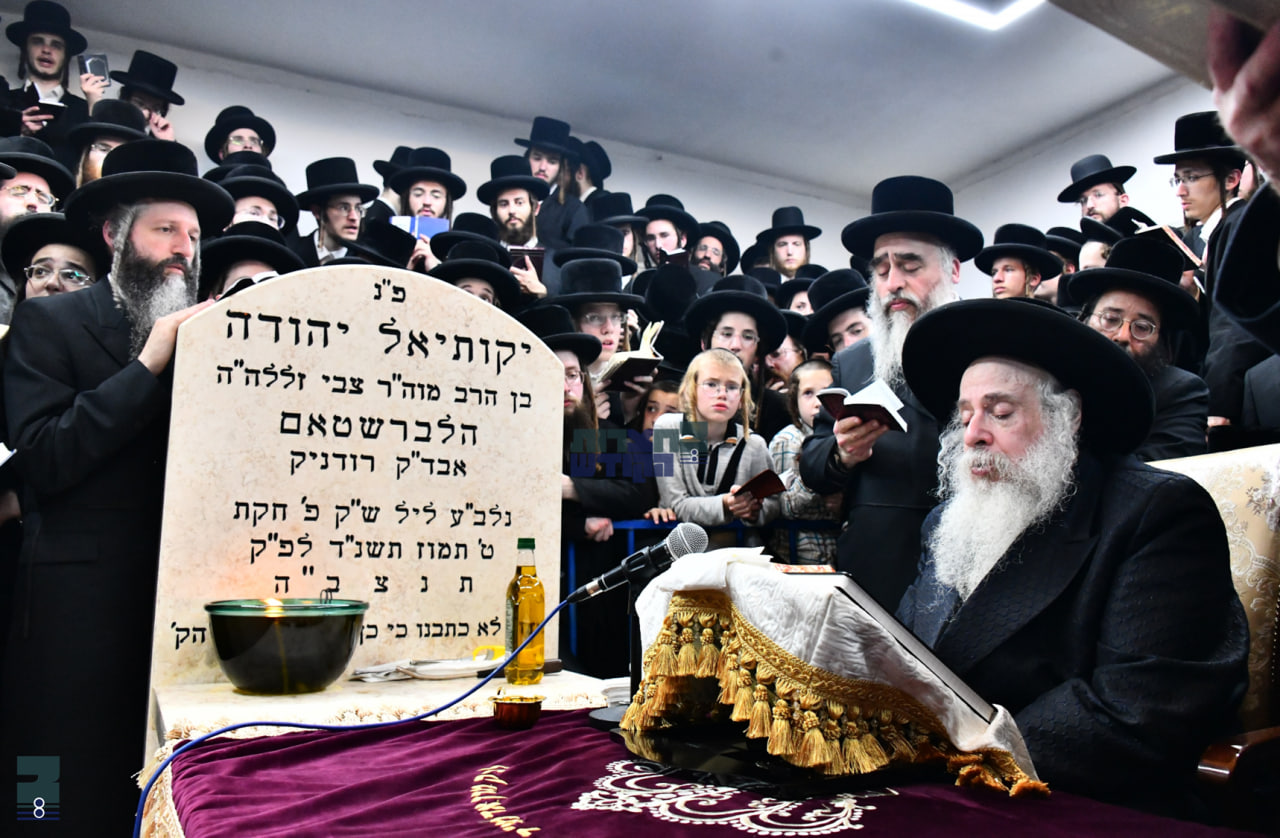 פ"נ
יקותיאל יהודה
בן הרב מוה"ר צבי זללה"ה
הלברשטאם
אבד"ק רודניק
נלב"ע ליל ש"ק פ' חקת
ט' תמוז תשנ"ד לפ"ק
ת נ צ ב" ה
לא כתבנו כי כן
הק'
8